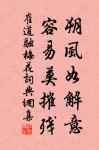 朔風如解意
容易莫摧殘
崔道融梅花詞典網集